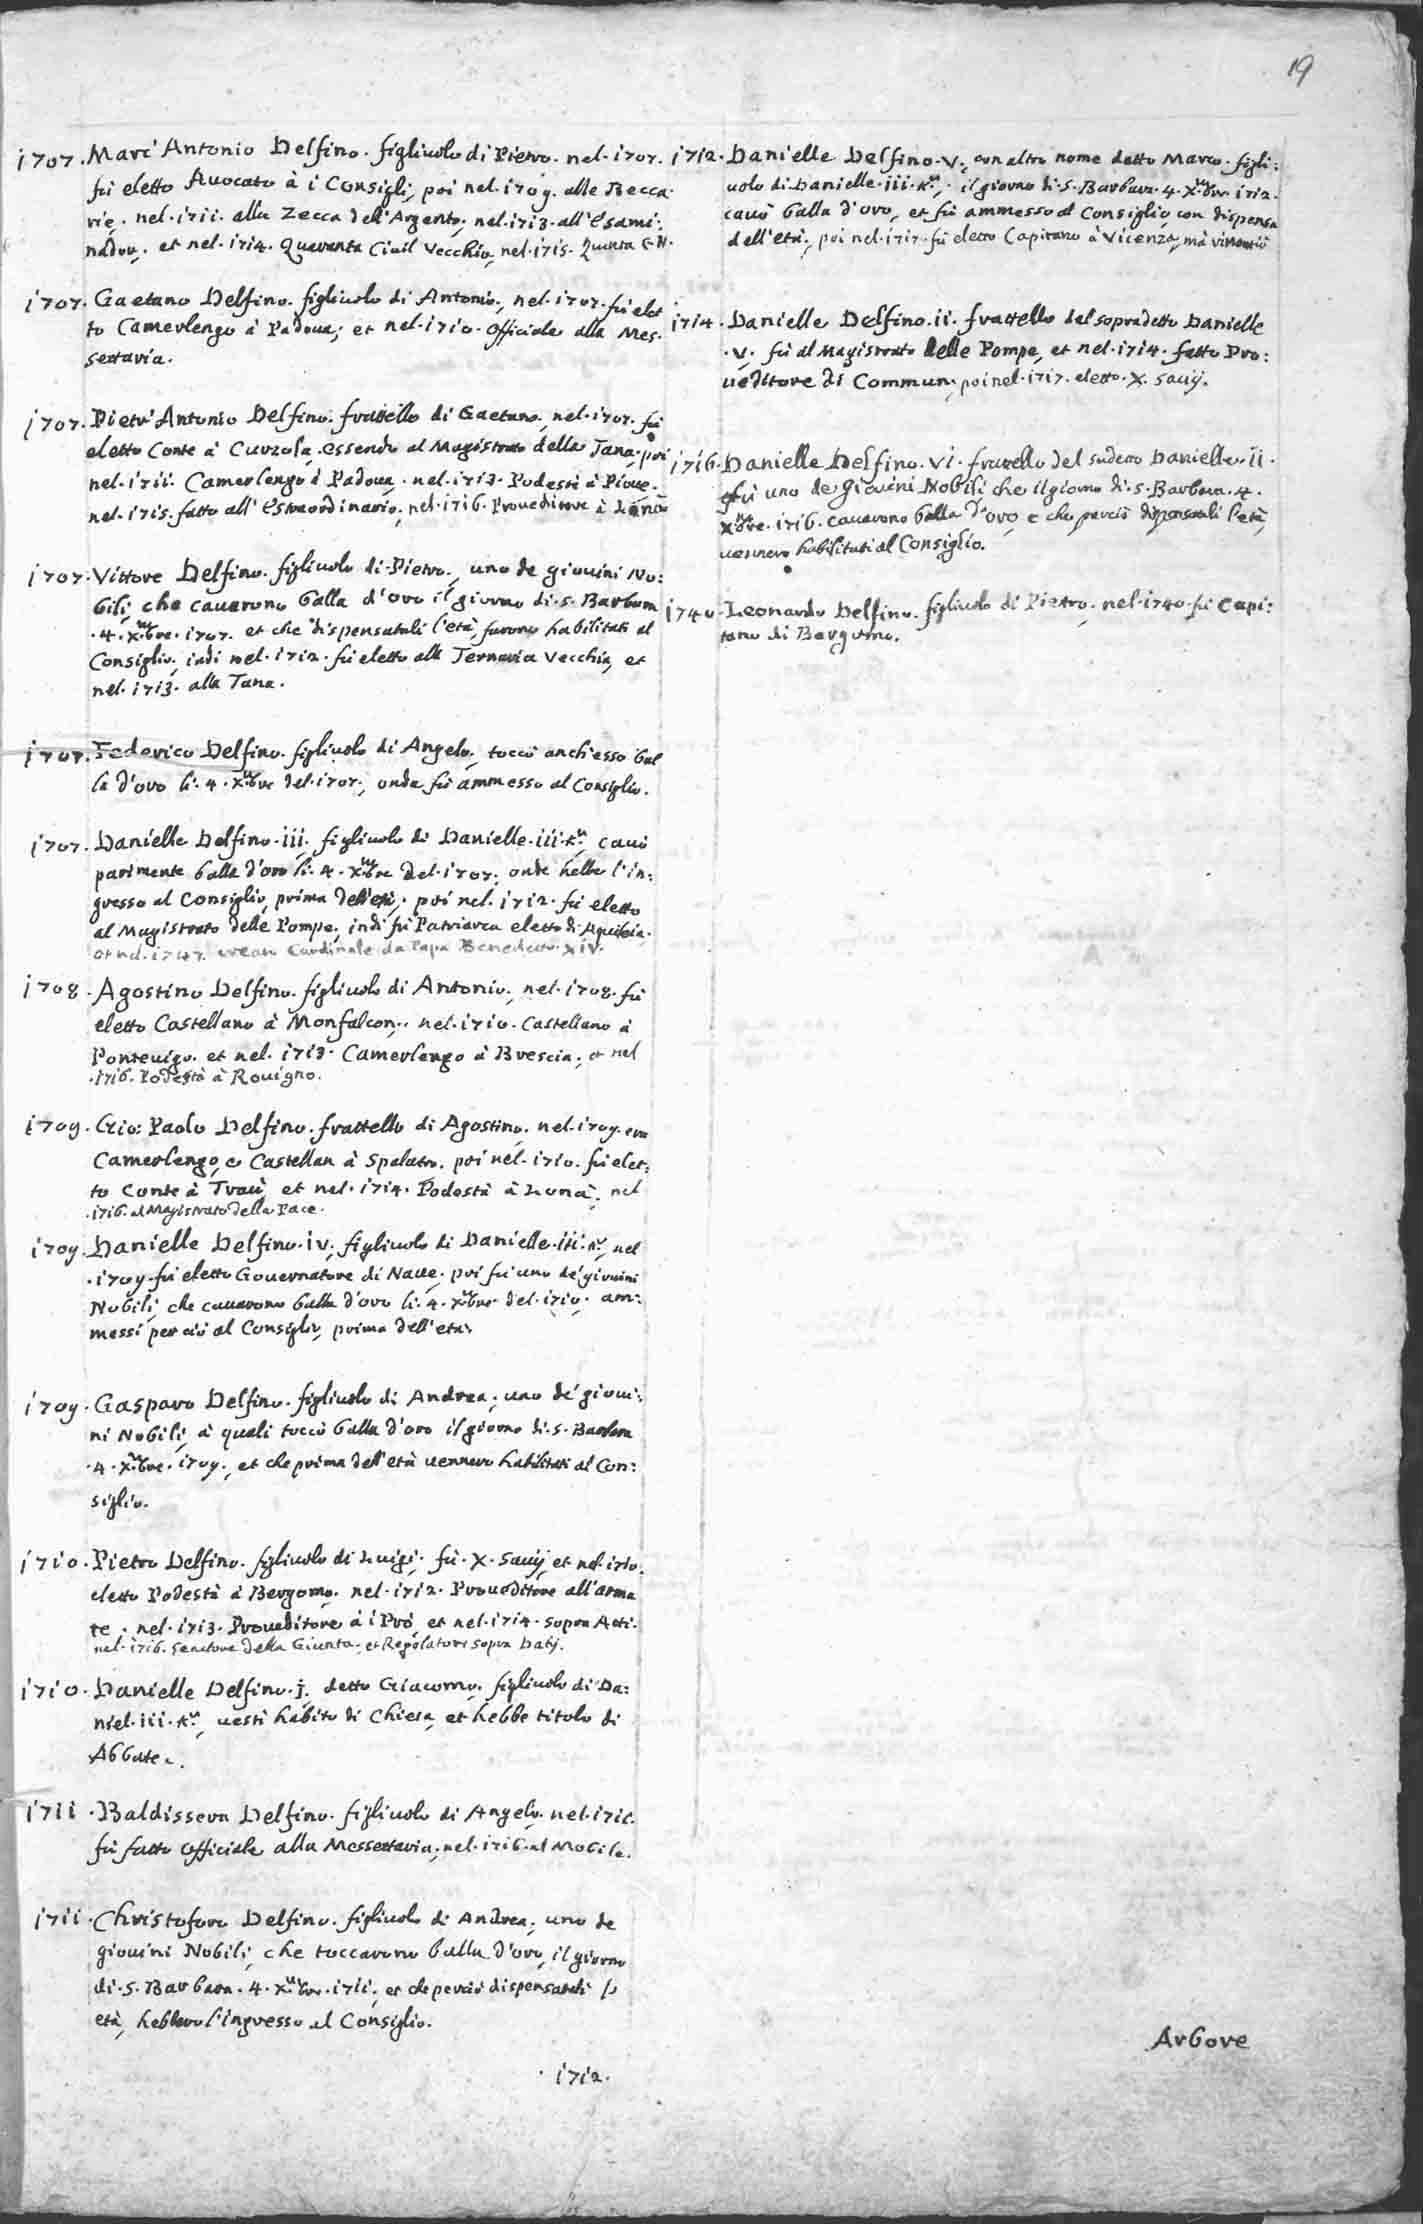 19
1707. Marc'Antonio Delfino. figliuolo di Pietro. nel. 1707.
fù eletto Auocato à i Consigli, poi nel. 1709. alle Becca:
rie, nel. 1711. alla Zecca dell'Argento, nel. 1713. all'Esami:
nador, et nel. 1714. Quaranta Ciuil Vecchio, nel. 1715. Quaranta C. N.
1707. Gaetano Delfino. figliuolo di Antonio, nel. 1707. fù elet
to Camerlengo à Padoua; et nel. 1710. Officiale alla Mes:
settaria.
1707. Pietr'Antonio Delfino. frattello di Gaetano, nel. 1707. fù
eletto Conte à Curzola, essendo al Magistrato della Tana. poi
nel. 1711. Camerlengo à Padoua. nel. 1713. Podestà à Pioue.
nel. 1715. fatto all'Estraordinario, nel. 1716. Proueditore à Lonà
1707. Vittore Delfino. figliuolo di Pietro, uno de giouini No:
bili, che cauarono balla d'oro il giorno di. S. Barbara
. 4. Xmbre. 1707. et che dispensatali l'età, furono habilitati al
Consiglio, indi nel. 1712. fù eletto alla Ternaria Vecchia, et
nel. 1713. alla Tana.
1707. Federico Delfino. figliuolo di Angelo, toccò anch'esso bal
la d'oro li. 4. Xmbre del. 1707, onde fù ammesso al Consiglio.
1707. Danielle Delfino. iii. figliuolo di Danielle. iii. Kr, cauò
parimente balla d'oro li. 4. Xmbre del. 1707, onde hebbe l'in:
gresso al Consiglio, prima dell'età. poi nel. 1712. fù eletto
al Magistrato delle Pompe, indi fù Patriarca eletto di Aquileia.
et nel. 1747. creato Cardinale da Papa Benedetto. XIV.
1708. Agostino Delfino. figliuolo di Antonio, nel. 1708. fù
eletto Castellano à Monfalcon, nel. 1710. Castellano à
Ponteuigo. et nel. 1713. Camerlengo à Brescia, et nel
. 1716. Podestà à Rouigno.
1709. Gio: Paolo Delfino. frattello di Agostino, nel. 1709. era
Camerlengo, e Castellan à Spalatro. poi nel. 1710. fù elet:
to Conte à Traù, et nel. 1714. Podestà à Lonà, nel
. 1716. al Magistrato della Pace.
1709. Danielle Delfino. iv. figliuolo di Danielle. iii. Kr, nel
. 1709. fù eletto Gouernatore di Naue. poi fù uno de' giouini
Nobili, che cauarono balla d'oro li. 4. Xmbre del. 1710. am:
messi perciò al Consiglio, prima dell'età.
1709. Gasparo Delfino. figliuolo di Andrea, uno de' gioui:
ni Nobili, à quali toccò balla d'oro il giorno di. S. Barbara
. 4. Xmbre. 1709, et che prima dell'età uennero habilitati al Con:
siglio.
1710. Pietro Delfino. figliuolo di Luigi. fù. X. Sauij et nel. 1710.
eletto Podestà à Bergomo. nel. 1712. Proueditore all'arma
re. nel. 1713. Proueditore à i Prò, et nel. 1714. sopra Atti.
nel. 1716. Senatore della Giunta, et Regolatore sopra Datij.
1710. Danielle Delfino. j. detto Giacomo. figliuolo di Da:
niel. iii. Kr, uestì habito di Chiesa, et hebbe titolo di
Abbate.
1711. Baldissera Delfino. figliuolo di Angelo. nel. 1711.
fù fatto Officiale alla Messettaria, nel. 1716. al Mobile.
1711. Christoforo Delfino. figliuolo di Andrea, uno de
giouini Nobili, che toccarono balla d'oro, il giorno
di. S. Barbara. 4. Xmbre. 1711, et che perciò dispensatali l'
età, hebbero l'ingresso al Consiglio.
. 1712.
1712. Danielle Delfino. V. con altro nome detto Marco. figli:
uolo di Danielle. iii. Kr, il giorno di. S. Barbara. 4. Xmbre. 1712.
cauò balla d'oro, et fù ammesso al Consiglio, con dispensa
dell'età, poi nel. 1717. fù eletto Capitano à Vicenza, mà rinontiò
1714. Danielle Delfino. ii. frattello del sopradetto Danielle
. V. fù al Magistrato delle Pompe, et nel. 1714. fatto Pro:
ueditore di Commun, poi nel. 1717. eletto. X. Sauij.
1716. Danielle Delfino. VI. frattello del sudetto Danielle. ii.
fù uno de' giouini Nobili che il giorno di. S. Barbara. 4.
Xmbre. 1716. cauarono balla d'oro, e che perciò dispensatali l'età,
uennero habilitati al Consiglio.
1740. Leonardo Delfino. figliuolo di Pietro, nel. 1740. fù Capi:
tano di Bergomo.
Arbore